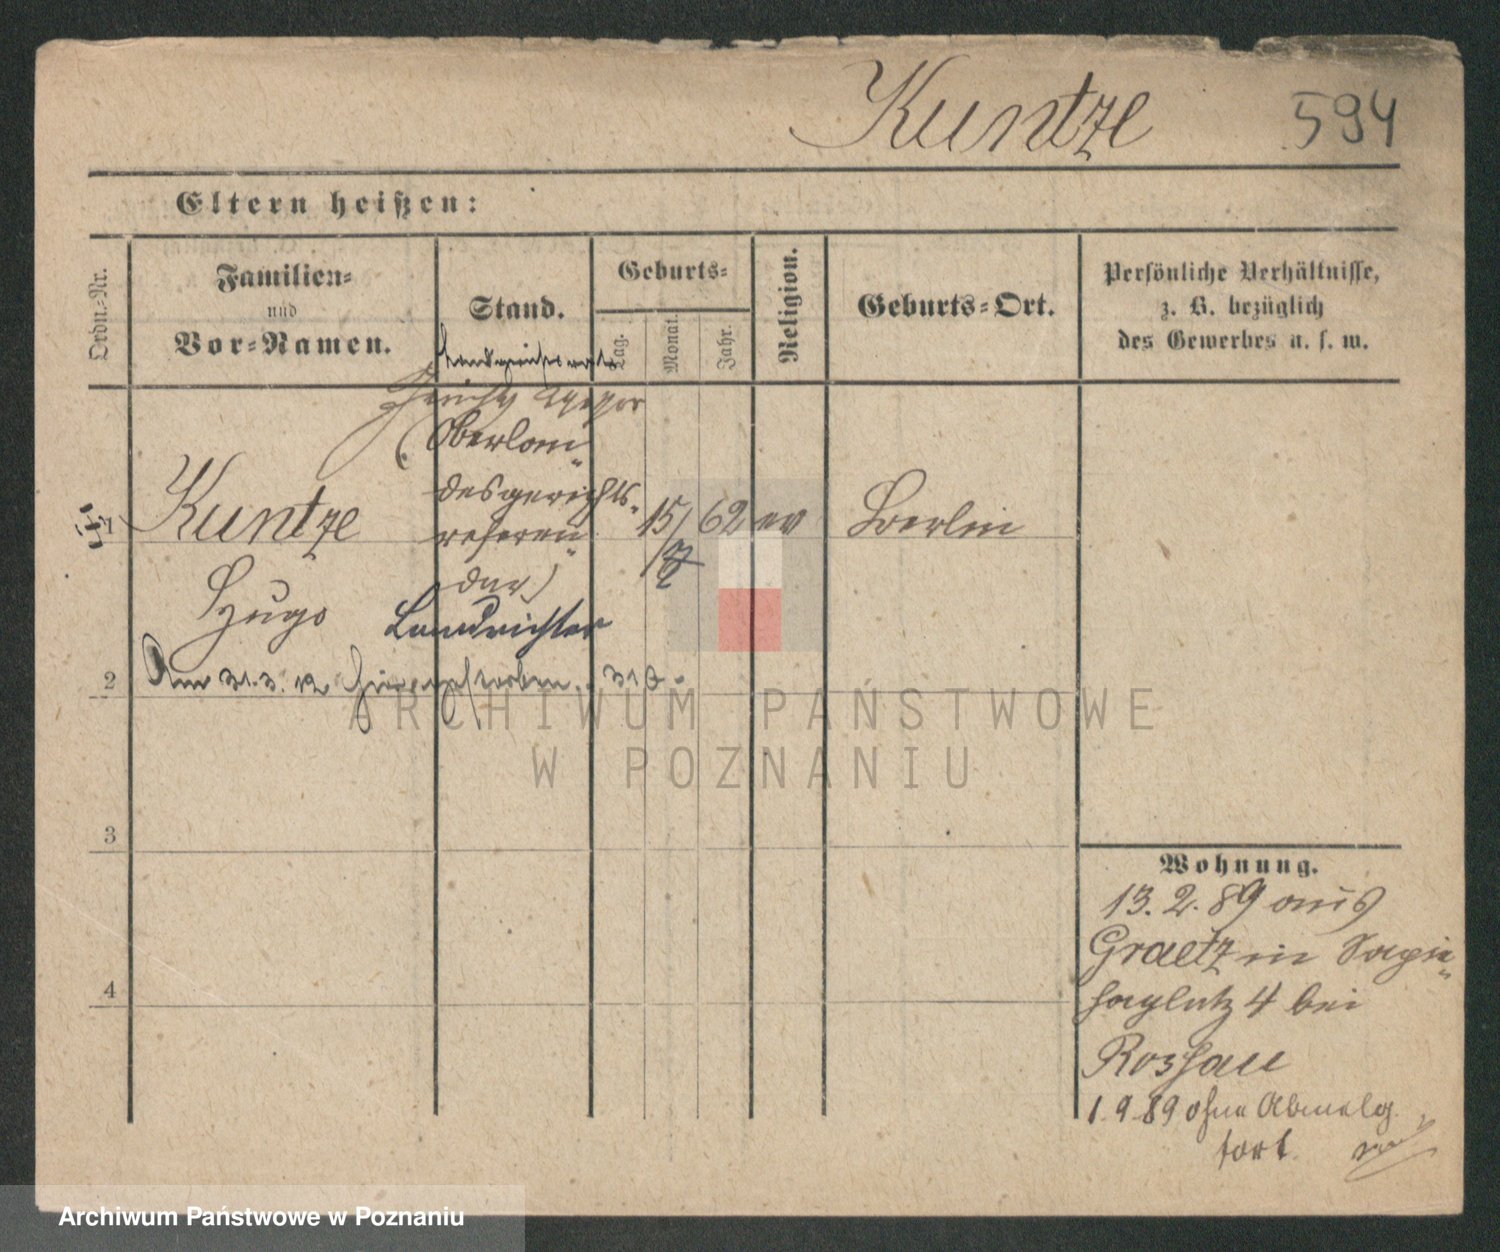 Kuntze 594
Eltern heißen:
Ordn.-Nr.
Familien-
und
Vor-Namen.
Stand.
Geburts-
Tag.
Monat.
Jahr.
Religion.
Geburts-Ort.
Persönliche Verhältnisse,
z. B. bezüglich
des Gewerbes u. s. w.
Landgerichtsrat
(Oberlan-
desgerichts-
referen-
dar)
Landrichter
1 Kuntze
Hugo
15/
62 ev Berlin
2 Am 31.3.12 hier verstorben.
3
4
Wohnung.
13. 2. 89 aus
Graetz in Sapie-
haplatz 4 bei
Roshau
1. 9. 89 ohne Abmeldg.
fort.
ARCHIWUM PAŃSTWOWE
W POZNANIU
Archiwum Państwowe w Poznaniu